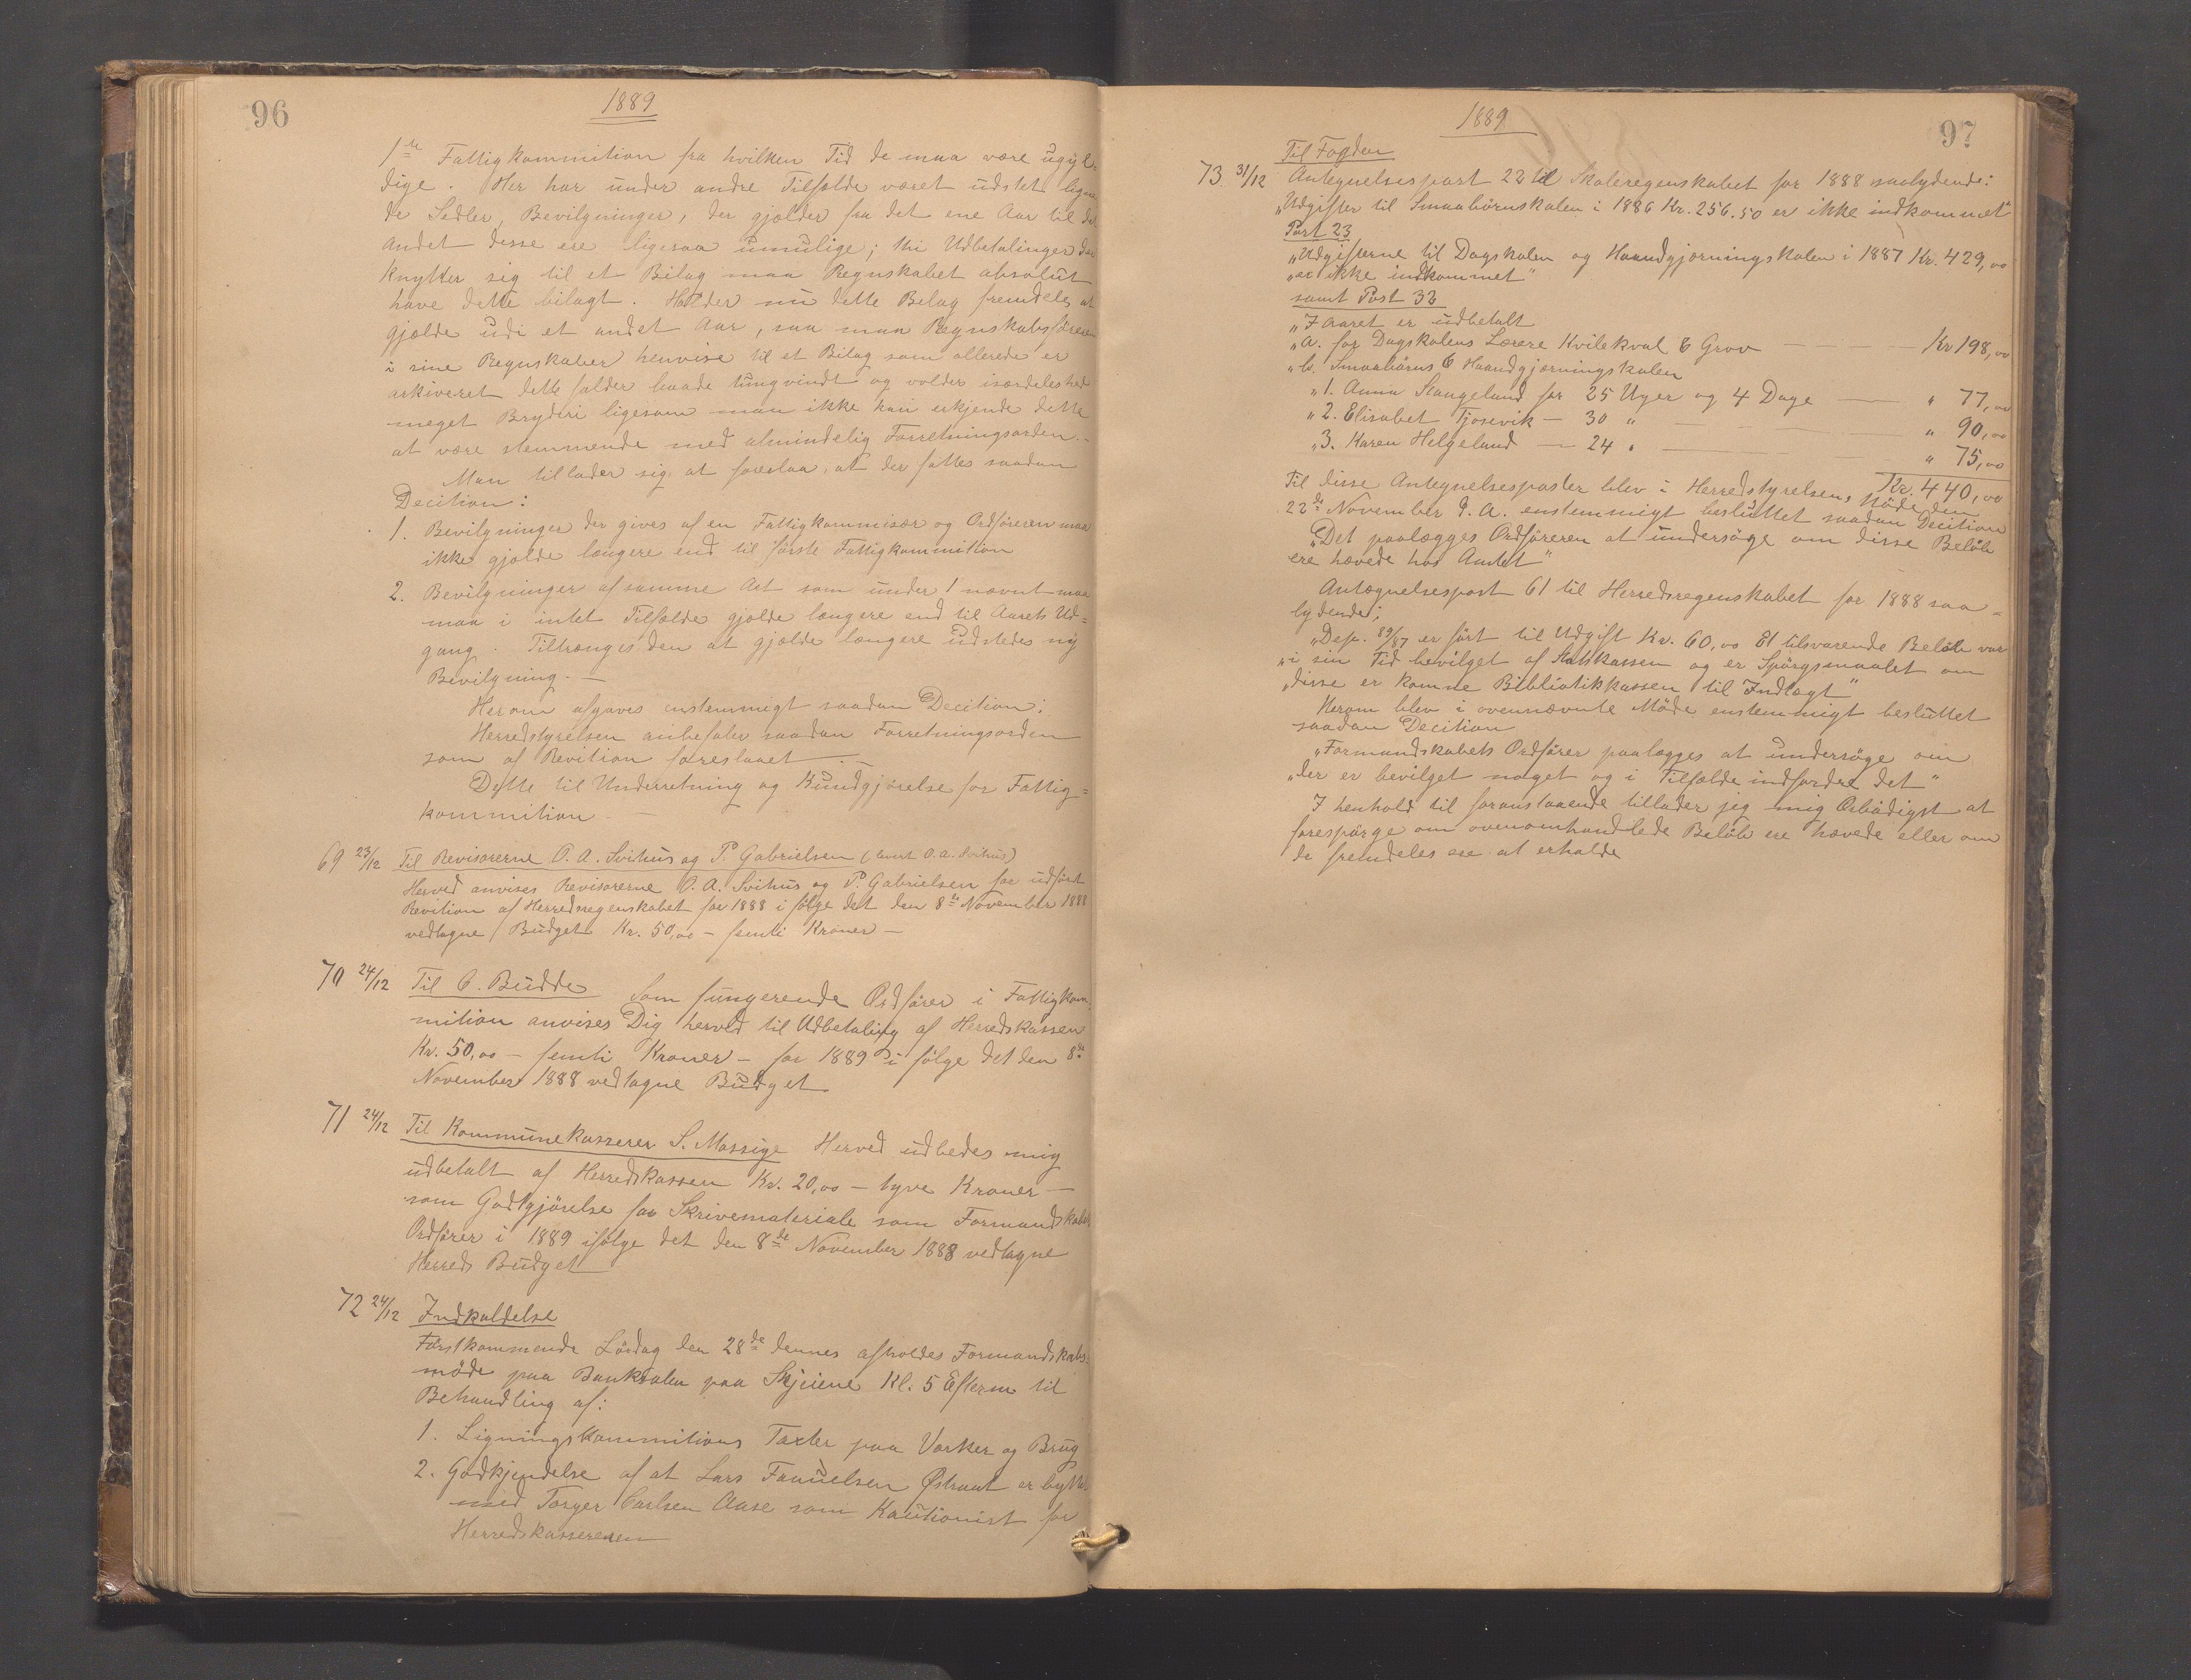 96
1889
1ste Fattigkommition fra hvilken Tid de maa være ugyl-
dige. Her har under andre Tilfælde været udstet lignen
de Sedler, Bevilgninger, der gjælder fra det ene Aar til det
Andet desse ere ligesaa umulige; thi Udbetalinger der
knytter sig til et Bilag maa Regnskabet absolut
have dette bilagt. Holder nu dette Belag fremdeles at
gjælde udi et andet Aar, saa maa Regnskabsføreren
i sine Regnskaber henvise til et Bilag som allerede er
arkiveret dette falder baade tungvindt og volder isærdeleshed
meget Bryderi ligesom man ikke kan erkjende dette
at være stemmende med almindelig Forretningsorden.-
Man tillader sig at foreslaa, at der fattes saadan
Decition:
1. Bevilgninger der gives af en Fattigkommisær og Ordføreren maa
ikke gjælde længere end til første Fattigkommition
2. Bevilgninger af samme Art som under 1 nævnt maa
maa i intet Tilfælde gjælde længere end til Aarets Ud=
gang. Tiltrænges den at gjælde længere udstedes ny
Bevilgning. —
Herom afgaves enstemmigt saadan Decition:
Herredstyrelsen anbefaler saadan Forretningsorden
som af Revition foreslaaet —
Dette til Underretning og Kundgjørelse for Fattig=
kommition —
69 23/12 Til Revisorerne O. A. Svihus og P. Gabrielsen (O. A. Svihus)
Herved anvises Revisorerne O. A. Svihus og P. Gabrielsen for udført
Revition af Herredsregenskabet for 1888 i følge det den 8de November 1888
vedtagne Budget Kr. 50,00 — femti Kroner —
70 24/12 Til C. Budde Som fungerende Ordfører i Fattigkom-
mition anvises Dig herved til Udbetaling af Herredskassen
Kr. 50,00 — femti Kroner — for 1889 i følge det den 8de
November 1888 vedtagne Budget
71 24/12 Til Kommunekasserer S. Massige Herved udbedes mig
udbetalt af Herredskassen Kr. 20,00 — tyve Kroner —
som Godtgjørelse for Skrivemateriale som Formandskabets
Ordfører i 1889 ifølge det den 8de November 1888 vedtagne
Herreds Budget
72 24/12 Indkaldelse
Førstkommende Lørdag den 28de dennes afholdes Formandskabs=
møde paa Banksalen paa Skjeiene Kl. 5 Efterm til
Behandling af:
1. Ligningskommitions Taxter paa Værker og Brug
2. Godkjendelse af at Lars Østraat er byttet
med Torger Carlsen Aase som Kautionist for
Herredskassereren
1889
97
Til Fogden
73 31/12 Antegnelsespost 22 til Skoleregenskabet for 1888 saalydende:
„Udgifter til Smaabørnskolen i 1886 Kr. 256.50 er ikke indkommet"
Post 23
„Udgifterne til Dagskolen og Haandgjørningskolen i 1887 Kr. 429,00
„er ikke indkommet"
samt Post 32
„I Aaret er udbetalt
„a. for Dagskolens Lærere Kvilekval & Grov — — — Kr 198,00
„b. Smaabørns & Haandgjørningskolen
„1. Anna Stangeland for 25 Uger og 4 Dage — " 77,00
„2. Elisabet Tjosevik — 30 " — " 90,00
„3. Karen Helgeland — 24 " — " 75,00
Kr. 440,00
Til disse Antegnelsesposter blev i Herredstyrelsens Møde den
22de November d. A. enstemmigt besluttet saadan Decition
„Det paalægges Ordføreren at undersøge om disse Beløb
ere hævede hos Amtet"
Antægnelsespost 61 til Herredsregenskabet for 1888 saa=
lydende;
„Dep. 89/87 er ført til Udgift Kr. 60,00 Et tilsvarende Beløb var
„i sin Tid bevilget af Statskassen og er Spørgsmaalet om
„disse er komne Bibliotikkassen til Indtægt"
Herom blev i ovennævnte Møde enstemmigt besluttet
saadan Decition
„Formandskabets Ordfører paalægges at undersøge om
„der er bevilget noget og i Tilfælde indfordre det"
I henhold til foranstaaende tillader jeg mig Ærbødigst at
forespørge om ovenomhandlede Beløb ere hævede eller om
de fremdeles ere at erholde